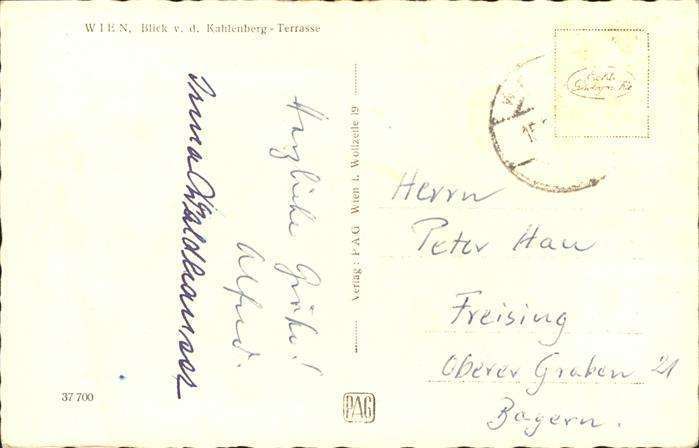 WIEN, Blick v. d. Kahlenberg-Terrasse
Herzliche Grüße!
Alfred.
Irma Waldhauser
Verlag: PAG Wien I. Wollzeile 19
Echte
Herrn
Peter Hau
Freising
Oberer Graben 21
Bayern.
37 700
PAG